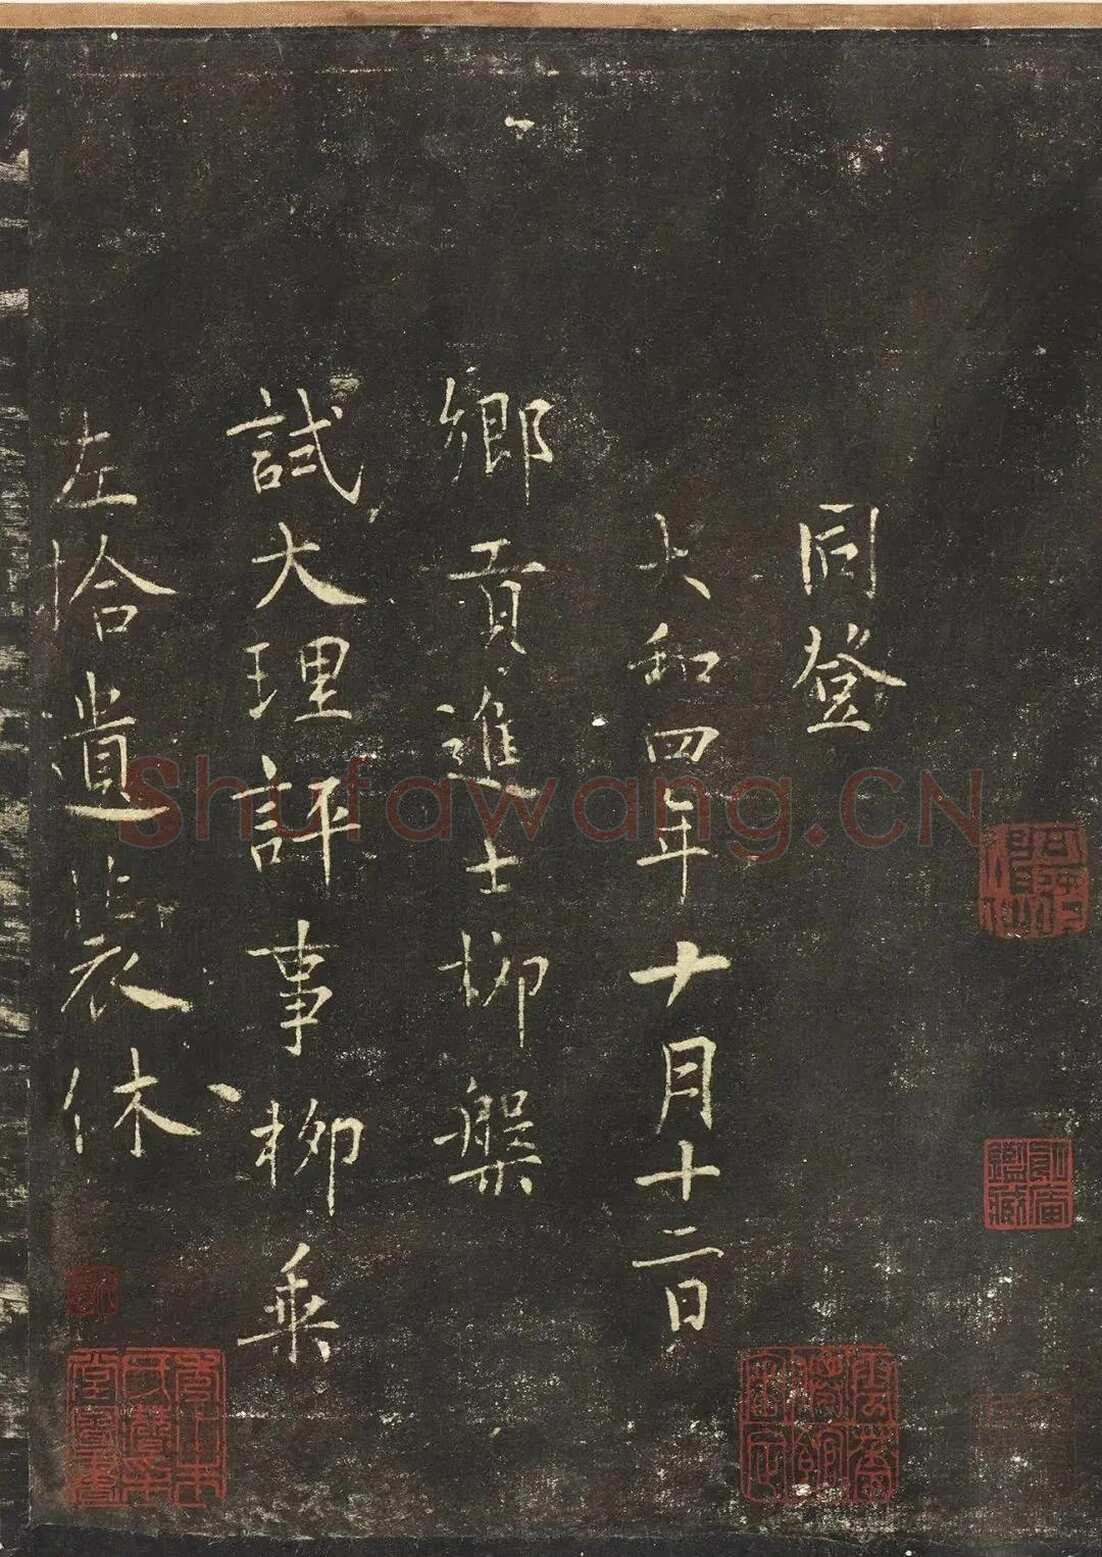 同登
大和四年十月十二日
鄉貢進士柳槃
試大理評事柳乘
左拾遺裴休
Shufawang.CN